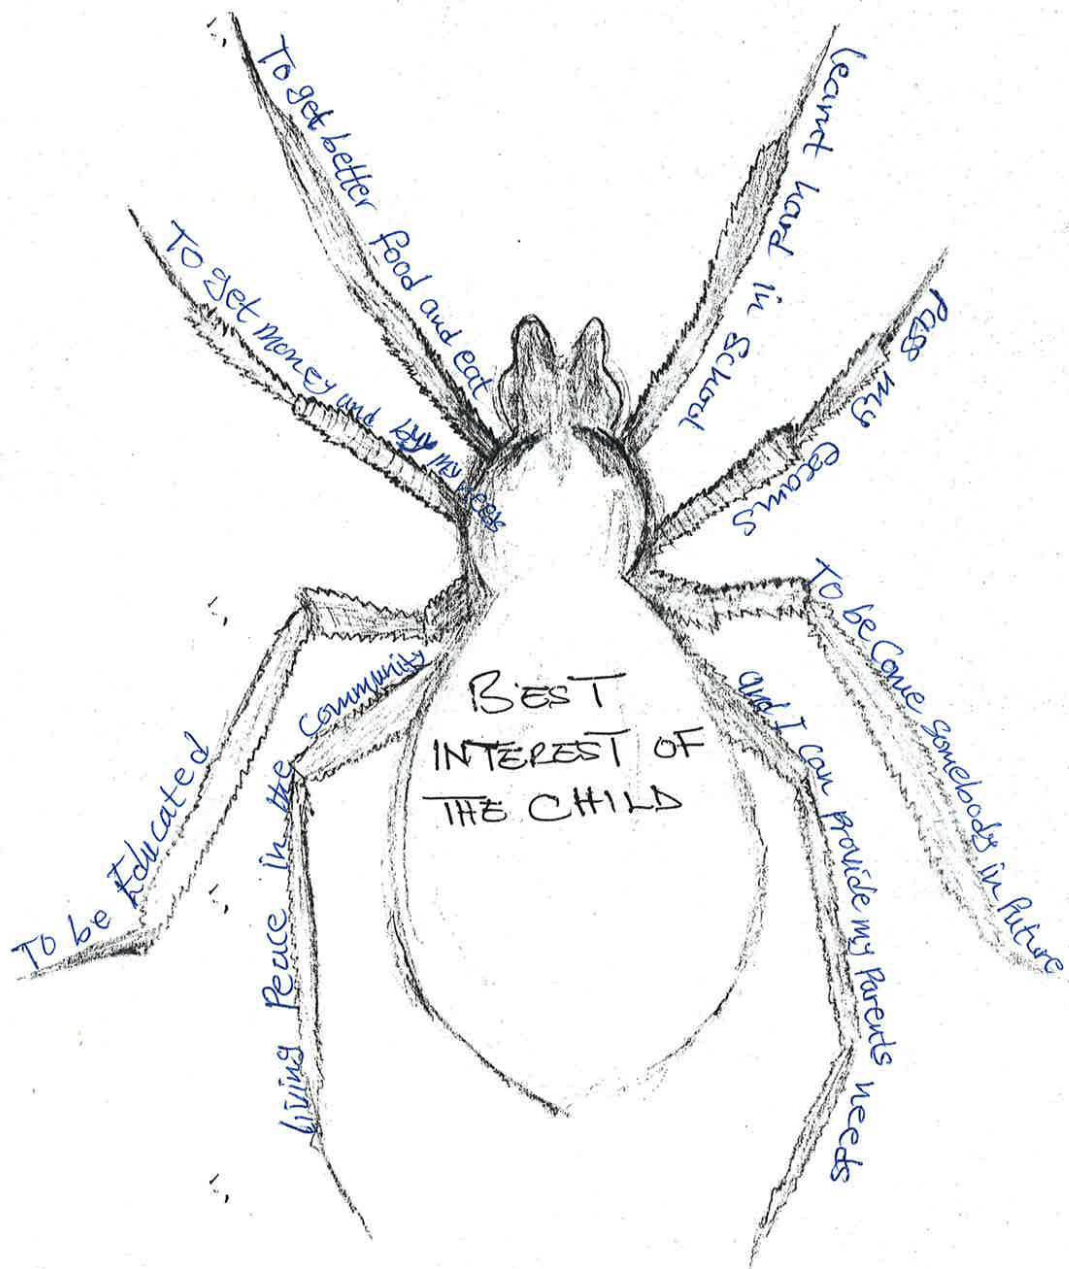 To get better food and eat
To get money and buy my needs
To be Educated
living Peace in the community
BEST
INTEREST OF
THE CHILD
learnt hard in School
Pass my exams
To be Come Somebody in future
and I can Provide my Parents needs